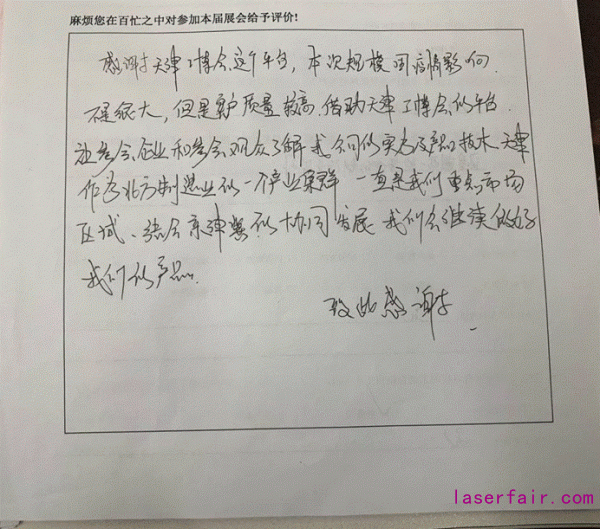 麻烦您在百忙之中对参加本届展会给予评价!
感谢天津工博会这个平台,本次规模因疫情影响
不是很大,但是客户质量较高.借助天津工博会的平台.
让参会企业和参会观众了解我公司的实力及产品技术.天津
作为北方制造业的一个产业集群 一直是我们重点市场
区域、结合京津冀的协同发展 我们会继续做好
我们的产品.
致此感谢
laserfair.com